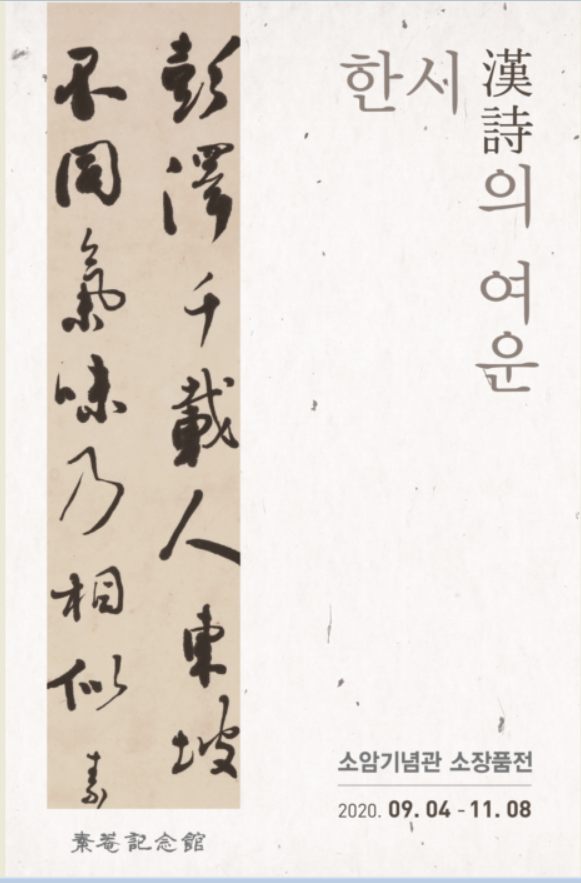 彭澤千載人東坡
不同氣味乃相似
素菴記念館
한시
漢詩의 여운
소암기념관 소장품전
2020. 09. 04 - 11. 08